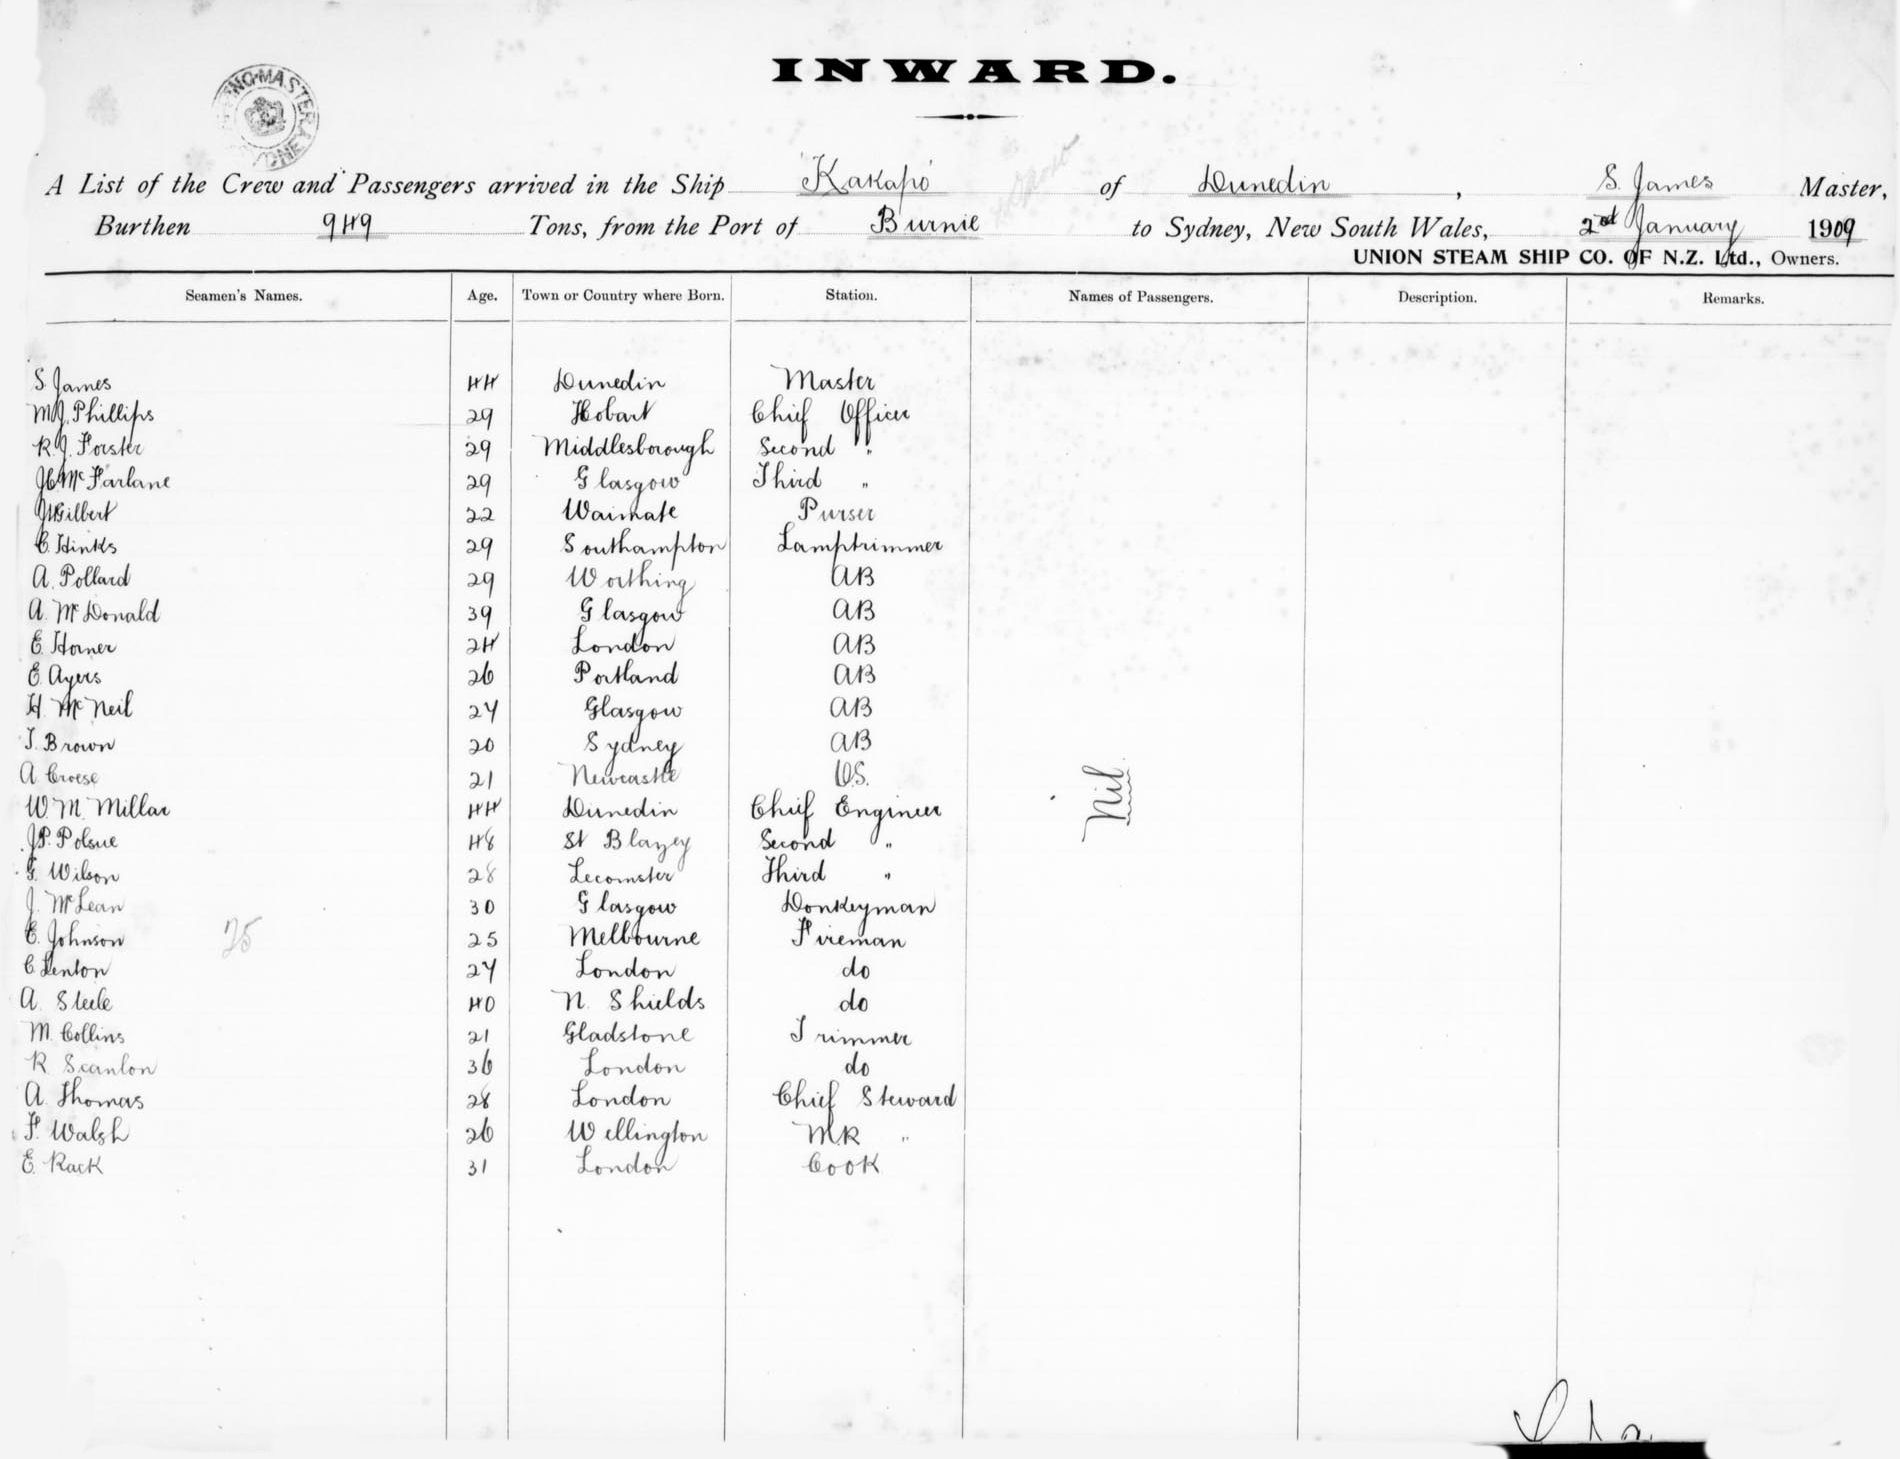 INWARD.
A List of the Crew and Passengers arrived in the Ship "Kakapo" of Dunedin, S. James Master,
Burthen 949 Tons, from the Port of Burnie to Sydney, New South Wales, 2nd January 1909
UNION STEAM SHIP CO. OF N.Z. Ltd., Owners.
Seamen's Names. Age. Town or Country where Born. Station. Names of Passengers. Description. Remarks.
S. James 44 Dunedin Master
M.J. Phillips 29 Hobart Chief Officer
R.J. Forster 29 Middlesborough Second "
J.C. McFarlane 29 Glasgow Third "
J.W. Gilbert 22 Waimate Purser
C. Hinks 29 Southampton Lamptrimmer
A. Pollard 29 Worthing AB
A. McDonald 39 Glasgow AB
E. Horner 24 London AB
E. Ayers 26 Portland AB
H. McNeil 24 Glasgow AB
T. Brown 20 Sydney AB
A. Croese 21 Newcastle O.S.
Nil
W. M. Millar 44 Dunedin Chief Engineer
J.P. Polsue 48 St Blazey Second "
G. Wilson 28 Leomster Third "
J. McLean 30 Glasgow Donkeyman
E. Johnson 25 25 Melbourne Fireman
C. Lenton 24 London do
A. Steele 40 N. Shields do
M. Collins 21 Gladstone Trimmer
R. Scanlon 36 London do
A. Thomas 28 London Chief Steward
F. Walsh 26 Wellington M.R "
E. Rack 31 London Cook